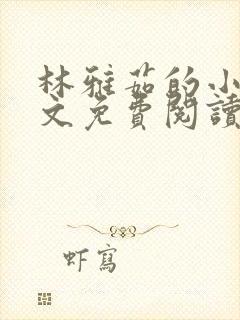 林雅茹的小
文免費閱讀
虾寫